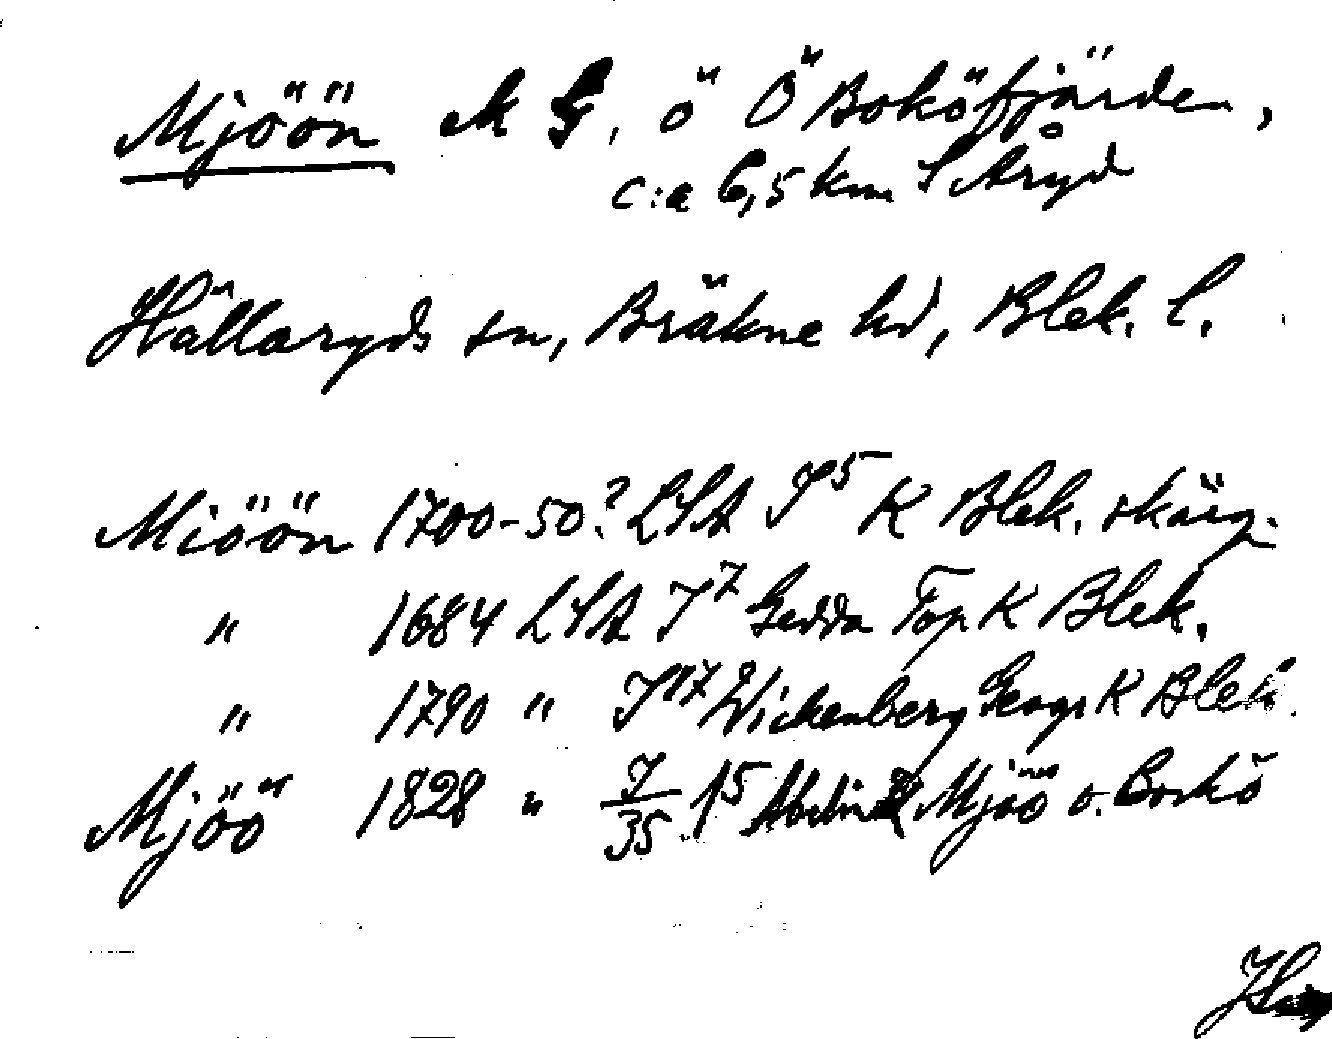 Mjöön M G, ö Ö Boköfjärden,
c:a 6,5 km S Åryd
Hällaryds sn, Bräkne hd, Blek. l.
Miöön 1700-50? LSA I 5 K Blek. skärg.
" 1684 LSA I 7 Gedda Top K Blek.
" 1790 " I 17 Wickenberg Geogr K Blek.
Mjöö 1828 " 7/35 15 Mjöö o. Bockö